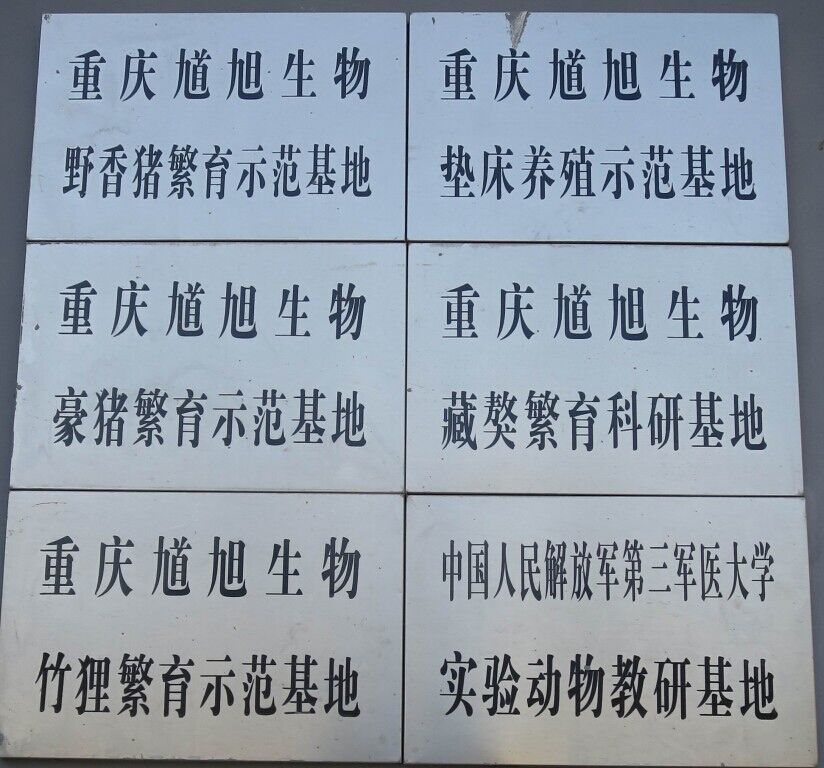 重庆馗旭生物
野香猪繁育示范基地
重庆馗旭生物
垫床养殖示范基地
重庆馗旭生物
豪猪繁育示范基地
重庆馗旭生物
藏獒繁育科研基地
重庆馗旭生物
竹狸繁育示范基地
中国人民解放军第三军医大学
实验动物教研基地